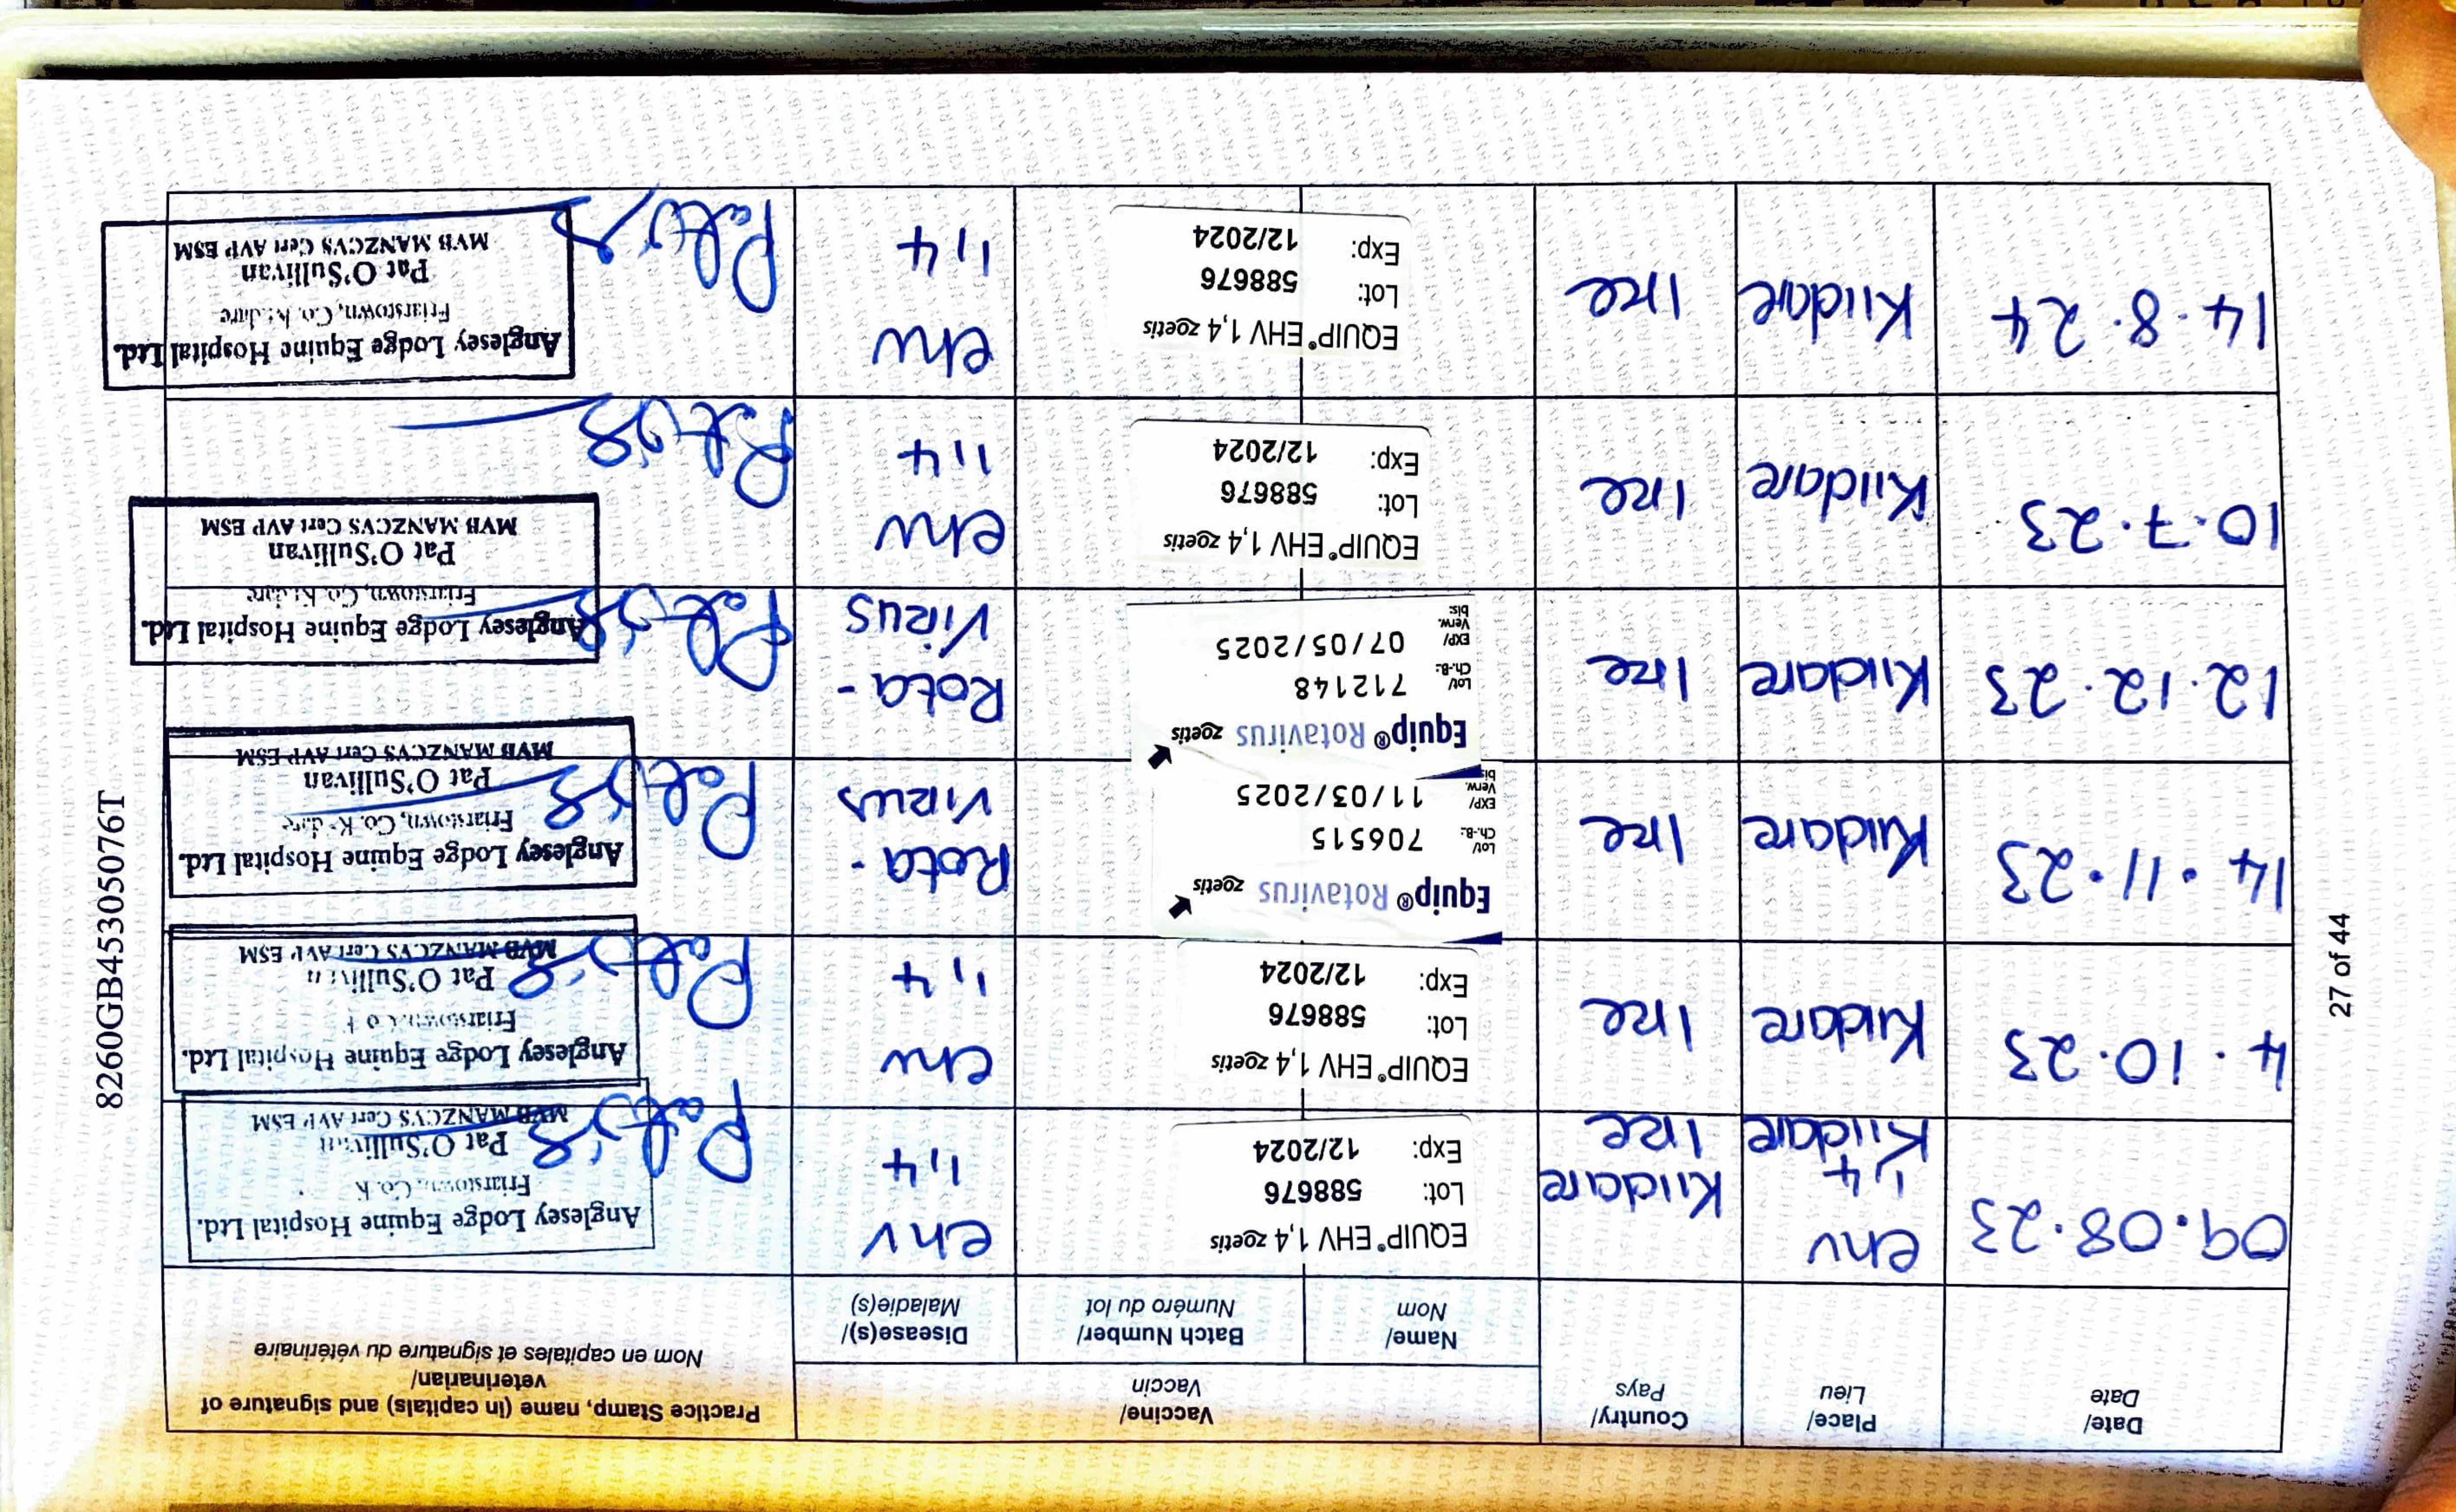 Date/
Date
Place/
Lieu
Country/
Pays
Vaccine/
Vaccin
Name/
Nom
Batch Number/
Numéro du lot
Disease(s)/
Maladie(s)
Practice Stamp, name (in capitals) and signature of
veterinarian/
Nom en capitales et signature du vétérinaire
09.08.23
ehv
1,4
Kildare
Kildare
Ire
EQUIP® EHV 1,4 zoetis
Lot: 588676
Exp: 12/2024
ehv
1,4
Anglesey Lodge Equine Hospital Ltd.
Friarstown, Co. K
Pat O'Sullivan
MVB MANZCVS Cert AVP ESM
4.10.23
Kildare
Ire
EQUIP® EHV 1,4 zoetis
Lot: 588676
Exp: 12/2024
ehv
1,4
Anglesey Lodge Equine Hospital Ltd.
Friarstown
Pat O'Sullivan
MVB MANZCVS Cert AVP ESM
14.11.23
Kildare
Ire
Equip® Rotavirus zoetis
Lot/
Ch.-B.: 706515
EXP/
Verw.
bis: 11/03/2025
Rota-
Virus
Anglesey Lodge Equine Hospital Ltd.
Friarstown, Co. Kildare
Pat O'Sullivan
MVB MANZCVS Cert AVP ESM
12.12.23
Kildare
Ire
Equip® Rotavirus zoetis
Lot/
Ch.-B.: 712148
EXP/
Verw.
bis: 07/05/2025
Rota-
Virus
Anglesey Lodge Equine Hospital Ltd.
Friarstown, Co. Kildare
Pat O'Sullivan
MVB MANZCVS Cert AVP ESM
10.7.23
Kildare
Ire
EQUIP® EHV 1,4 zoetis
Lot: 588676
Exp: 12/2024
ehv
1,4
14.8.24
Kildare
Ire
EQUIP® EHV 1,4 zoetis
Lot: 588676
Exp: 12/2024
ehv
1,4
Anglesey Lodge Equine Hospital Ltd.
Friarstown, Co. Kildare
Pat O'Sullivan
MVB MANZCVS Cert AVP ESM
27 of 44
8260GB453050076T